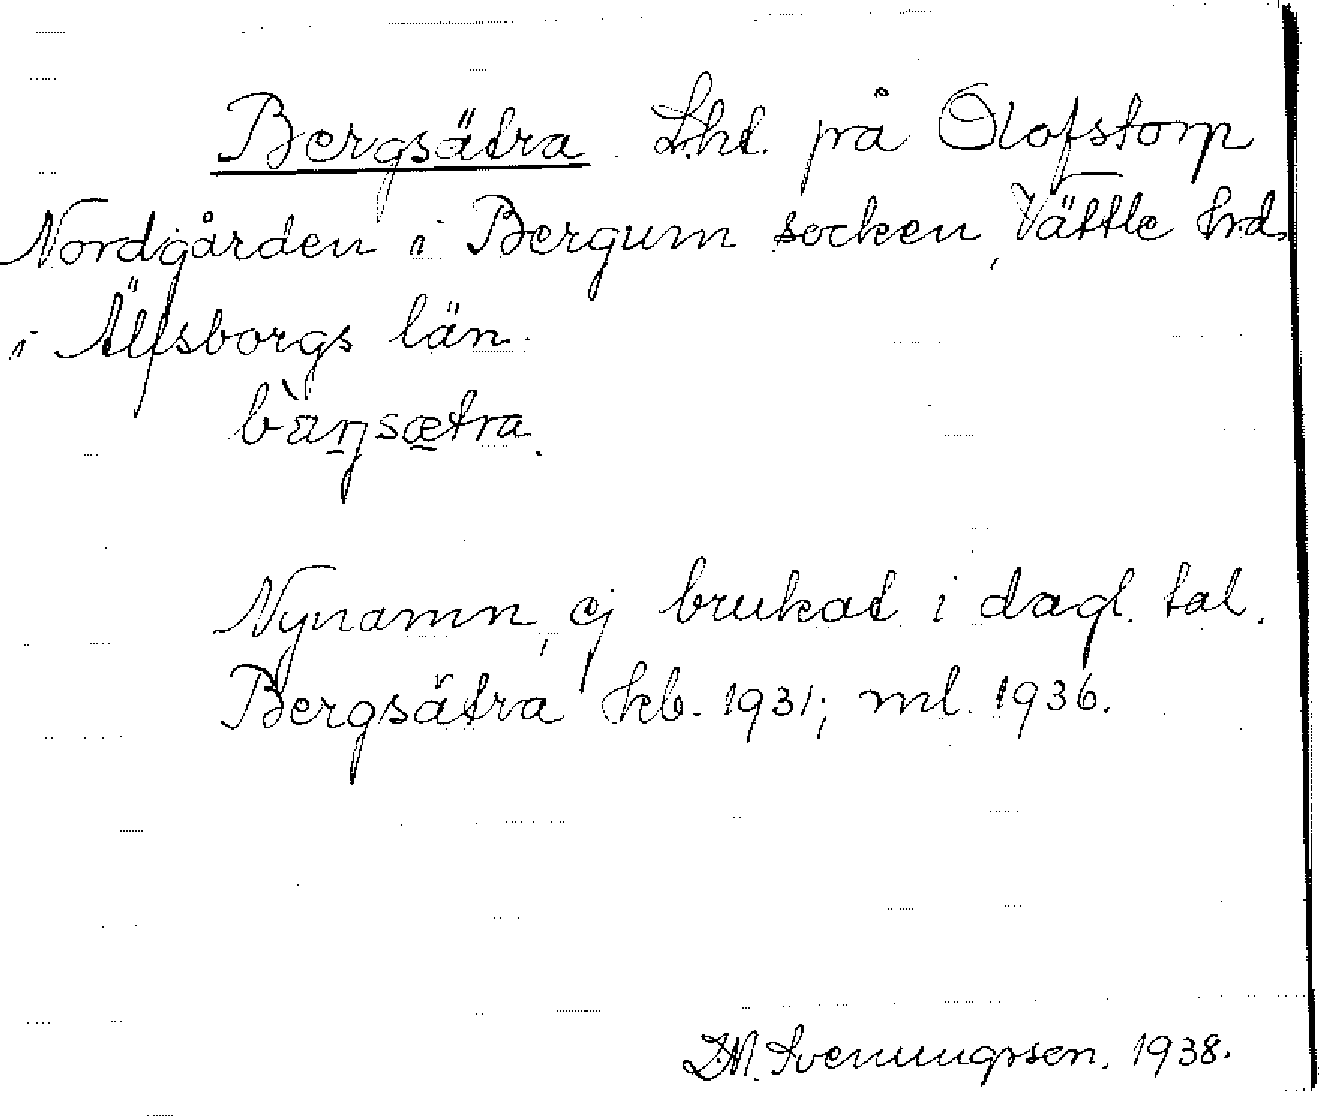 Bergsätra. Lht. på Olofstorp
Nordgården i Bergum socken, Vättle hd.
i Älfsborgs län.
bàŋsætra.
Nynamn, ej brukat i dagl. tal.
Bergsätra kb. 1931; ml. 1936.
Svenungsson. 1938.